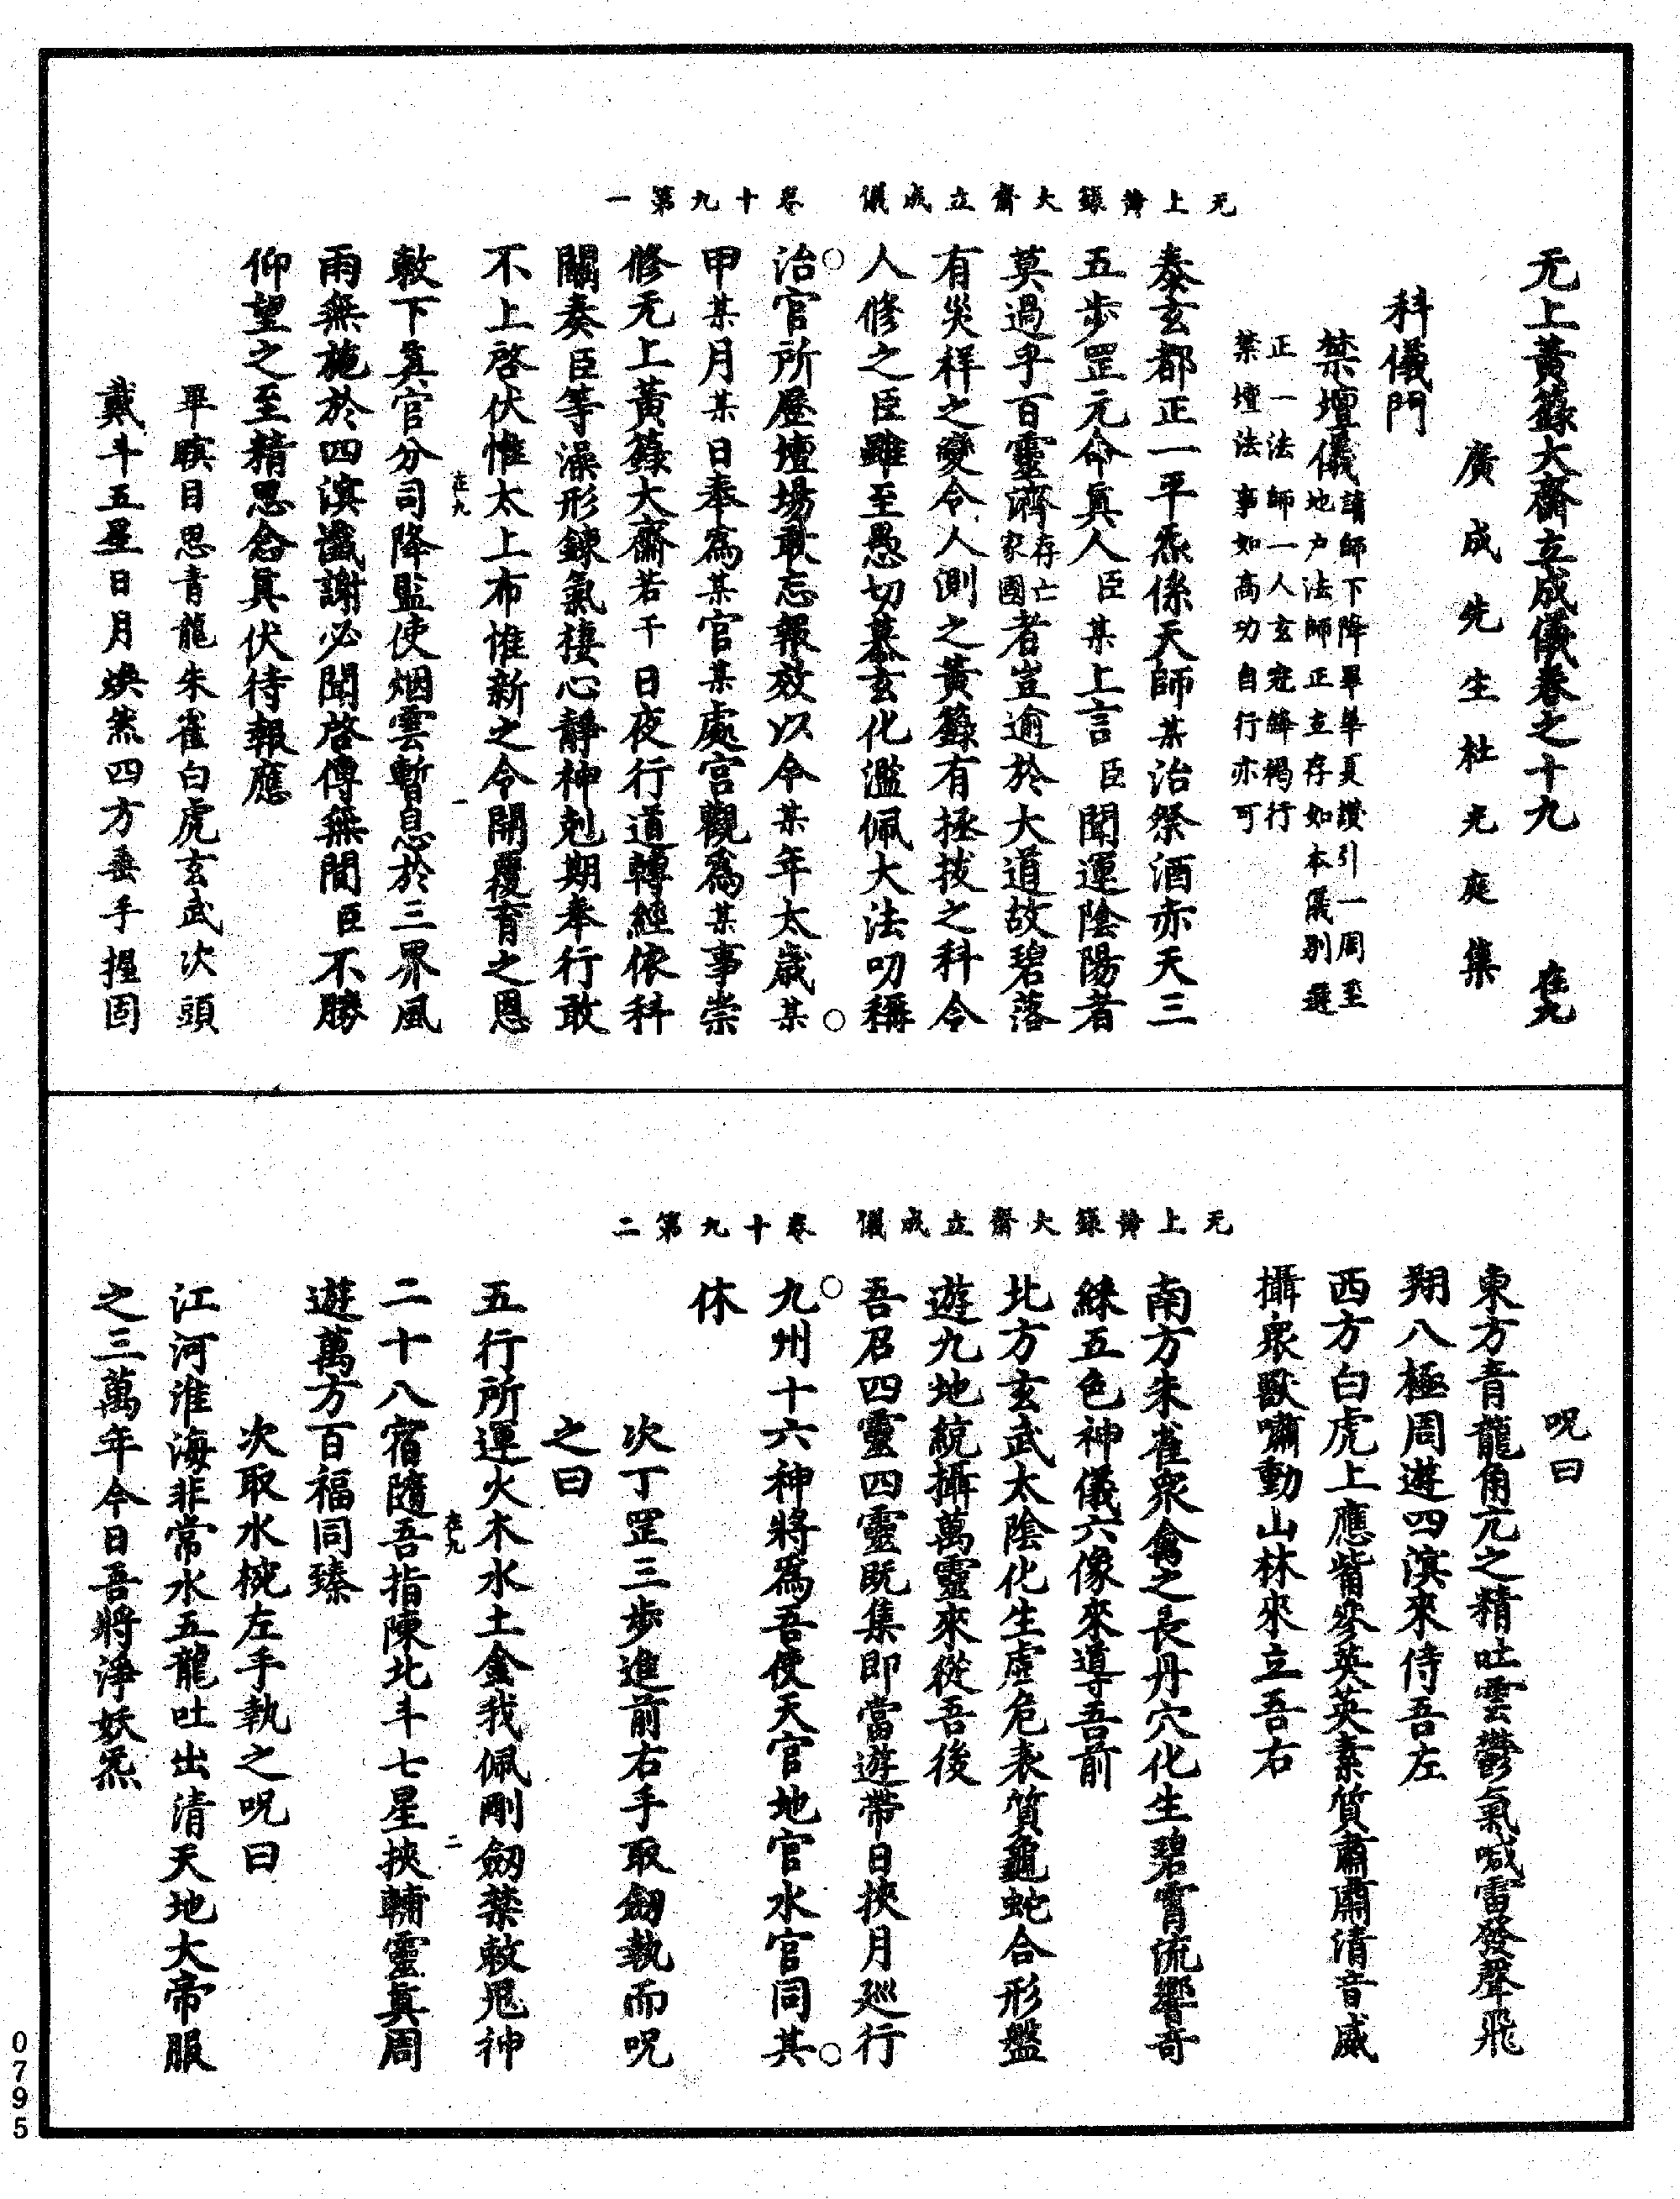 无上黃籙大齋立成儀卷之十九　在九
廣成先生杜光庭集
科儀門
禁壇儀請師下降畢華夏讚引一周至
地户法師正立存如本儀別選
正一法師一人玄冠絳褐行
禁壇法事如高功自行亦可
泰玄都正一平炁係天師某治祭酒赤天三
五步罡元命真人臣某上言臣聞運陰陽者
莫過乎百靈濟存亡家國者豈逾於大道故碧落
有災祥之變令人測之黃籙有拯拔之科令
人修之臣雖至愚切慕玄化濫佩大法叨稱
治官所歷壇場敢忘報效以今某年太歲某
甲某月某日奉爲某官某處宮觀爲某事崇
修无上黃籙大齋若干日夜行道轉經依科
關奏臣等澡形鍊氣棲心靜神剋期奉行敢
不上啓伏惟太上布惟新之令開覆育之恩
敕下真官分司降監使烟雲暫息於三界風
雨無施於四溟讖謝必聞啓傳無間臣不勝
仰望之至精思念真伏待報應
畢瞑目思青龍朱雀白虎玄武次頭
戴斗五星日月煥然四方垂手握固
无上黄籙大齋立成儀　卷十九第一
在九
一
呪曰
東方青龍角亢之精吐雲鬱氣喊雷發聲飛
翔八極周遊四溟來侍吾左
西方白虎上應觜參英英素質肅肅清音威
攝衆獸嘯動山林來立吾右
南方朱雀衆禽之長丹穴化生碧霄流響奇
綵五色神儀六像來導吾前
北方玄武太陰化生虛危表質龜蛇合形盤
遊九地統攝萬靈來從吾後
吾召四靈四靈既集即當遊帶日挾月廵行
九州十六神將爲吾使天官地官水官同其
休
次丁罡三步進前右手取劒執而呪
之曰
五行所運火木水土金我佩剛劒禁敕鬼神
二十八宿隨吾指陳北斗七星挾輔靈真周
遊萬方百福同臻
次取水椀左手執之呪曰
江河淮海非常水五龍吐出清天地大帝服
之三萬年今日吾將淨妖炁
无上黄籙大齋立成儀　卷十九第二
在九
二
0795